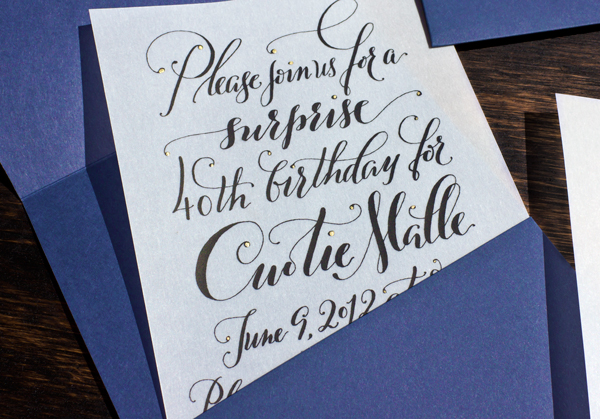 Please join us for a
surprise
40th birthday for
June 9, 2012 at